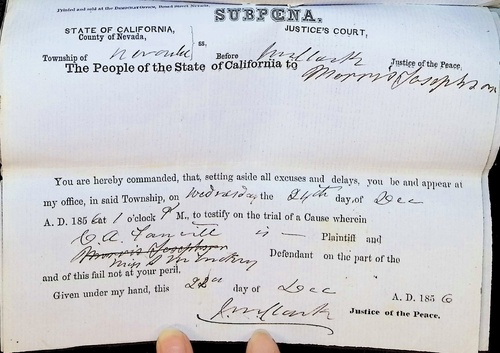 Printed and sold at the Office, Broad Street Nevada.
SUBPŒNA.
STATE OF CALIFORNIA, JUSTICE'S COURT,
County of Nevada, ss.
Township of Nevada Before Clark Justice of the Peace.
The People of the State of California to Morris Josephson
You are hereby commanded, that, setting aside all excuses and delays, you be and appear at
my office, in said Township, on Wednesday the 24th day, of Dec
A. D. 1856 at 1 o'clock P M., to testify on the trial of a Cause wherein
C. A. is Plaintiff and
Morris Josephson
Defendant on the part of the
and of this fail not at your peril,
Given under my hand, this 22 day of Dec A. D. 1856
Clark Justice of the Peace.